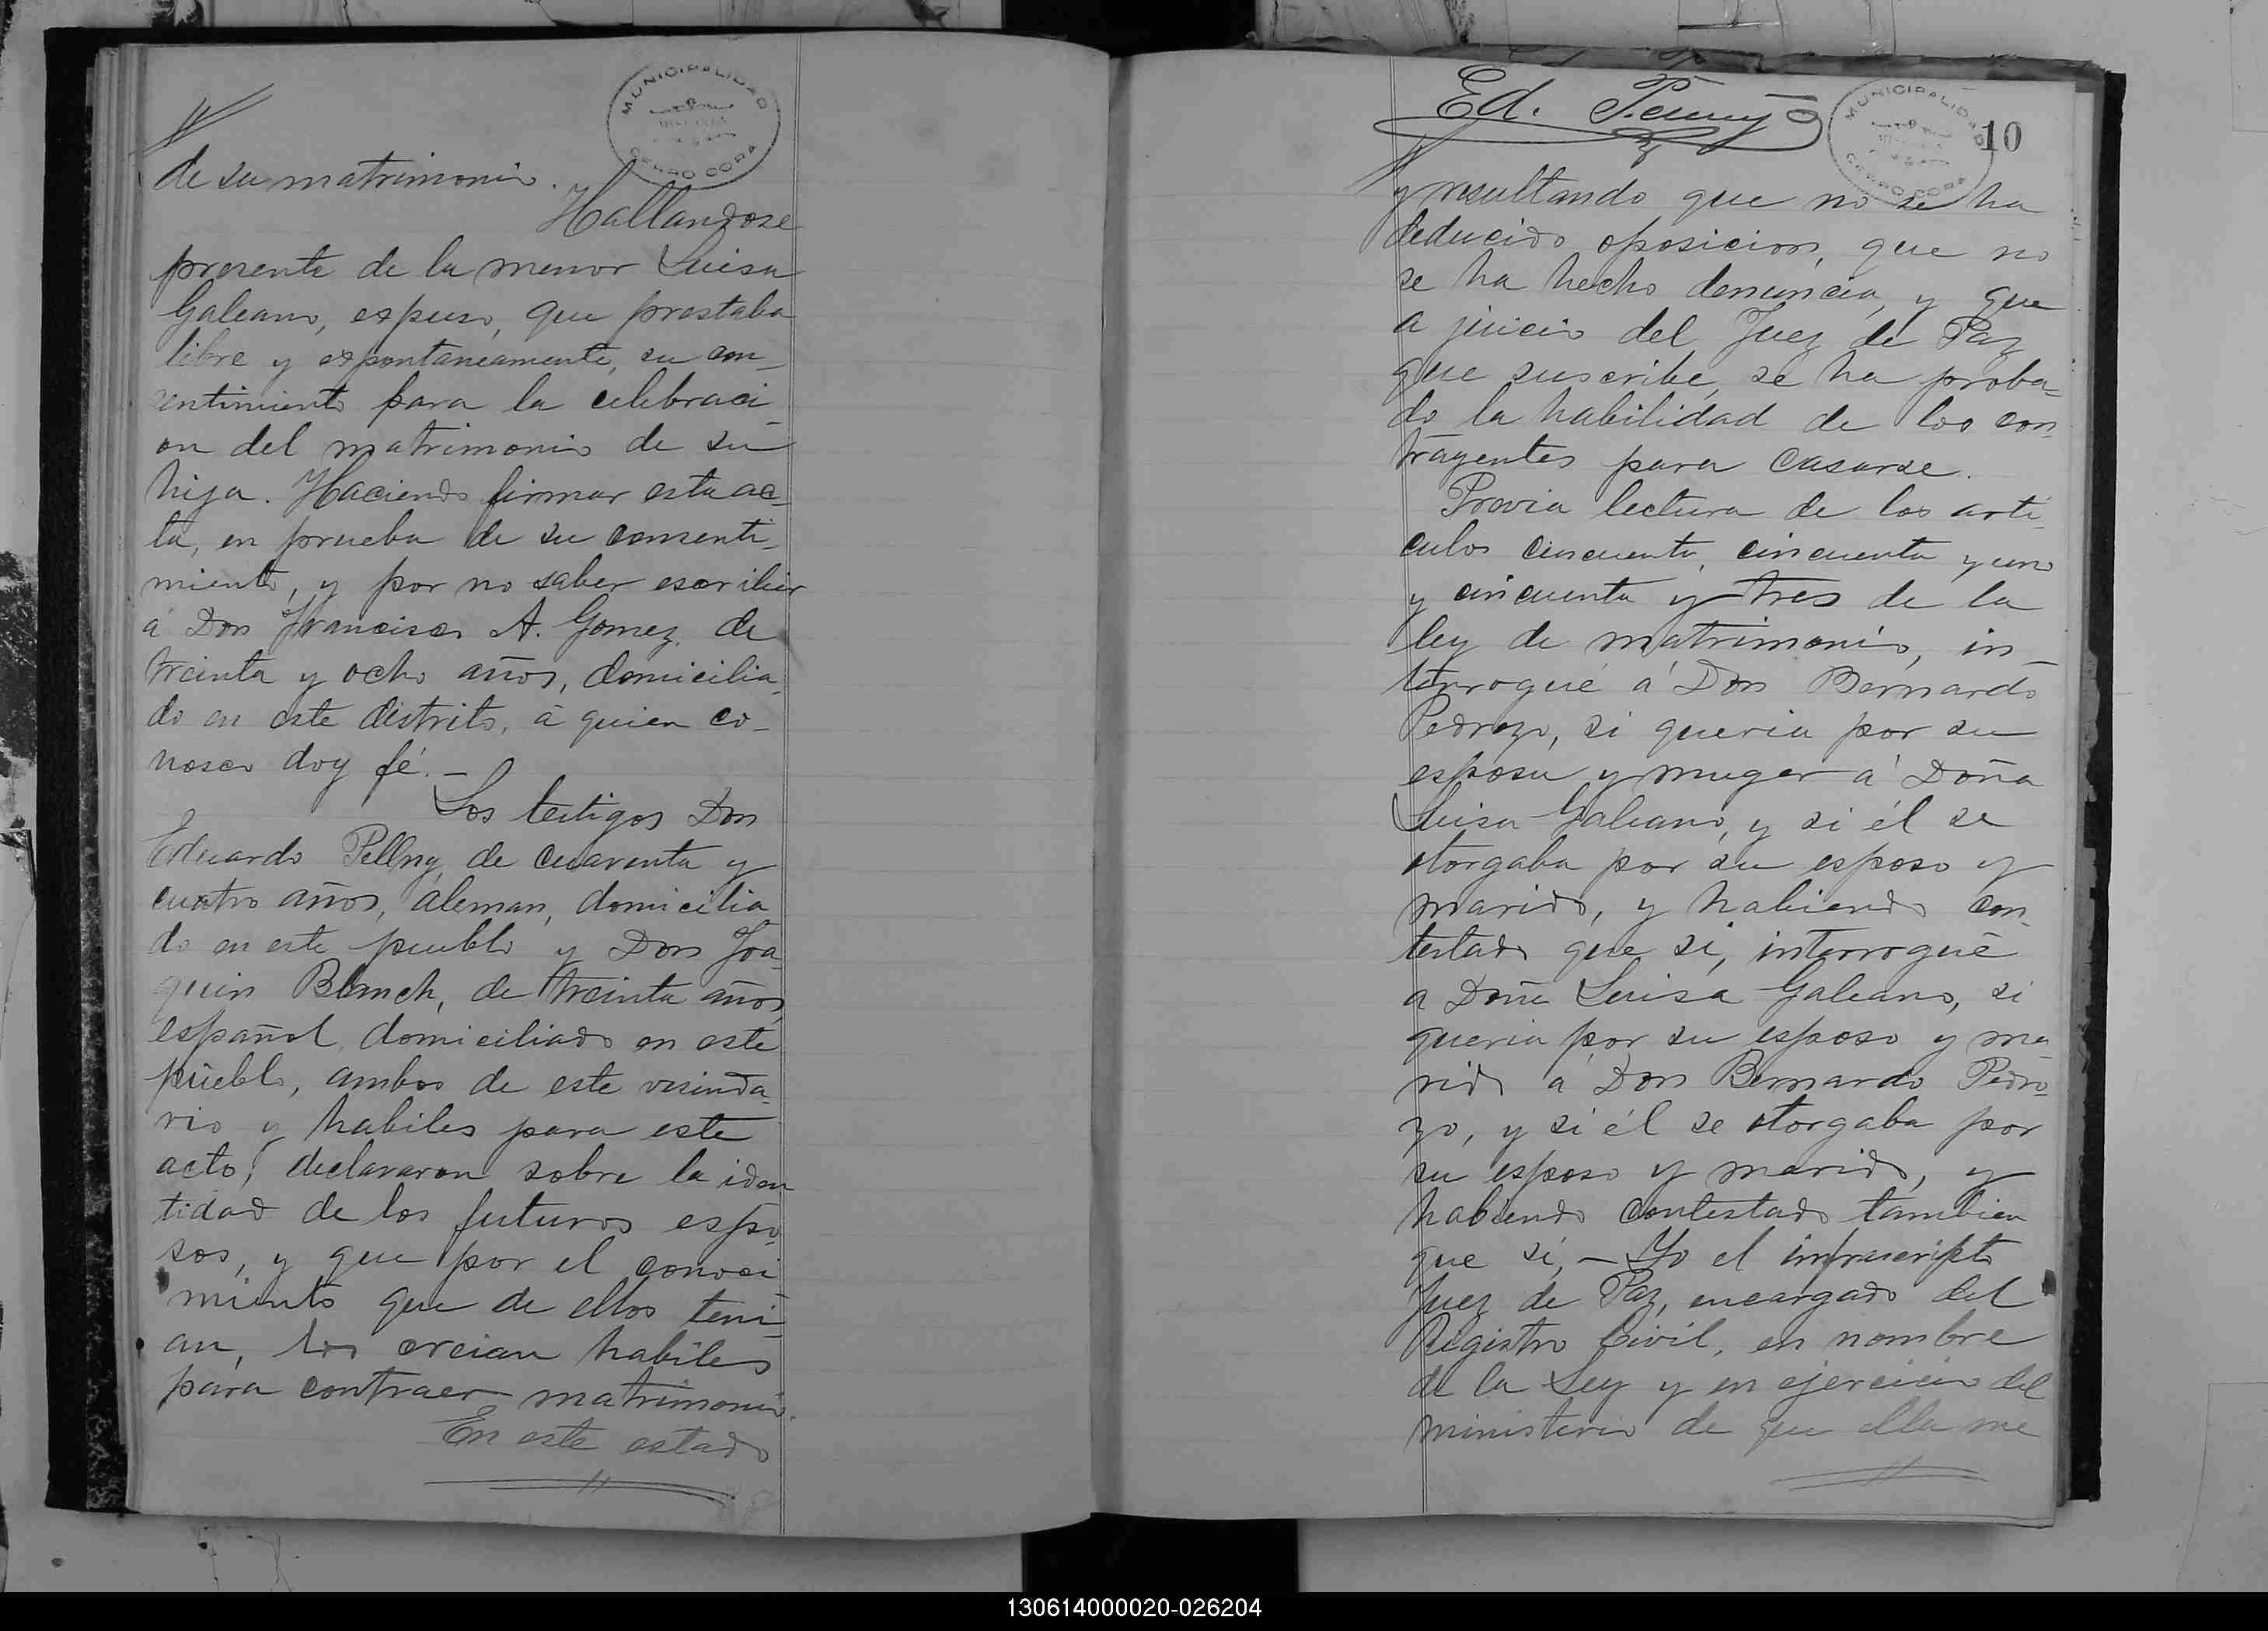 MUNICIPALIDAD
CERRO CORA
de su matrimonio.
Hallandose
presente de la menor Luisa
Galeano, expuso, que prestaba
libre y expontaneamente, su con_
sentimiento para la celebraci_
on del matrimonio de su
hija. Haciendo firmar esta ac_
ta, en prueba de su consenti_
miento, y por no saber escribir
á Don Francisco A. Gomez, de
treinta y ocho años, domicilia_
do en este distrito, á quien co_
nosco doy fé._
Los testigos Don
Eduardo Pellny, de cuarenta y
cuatro años, aleman, domicilia
do en este pueblo y Don Joa_
quin Blanch, de treinta años,
español, domiciliado en este
pueblo, ambos de este vesinda_
rio y habiles para este
acto, declararon sobre la iden
tidad de los futuros espo_
sos, y que por el conosi_
miento que de ellos teni_
an, los creian habiles
para contraer matrimonio.
En este estado
Ed.
MUNICIPALIDAD
CERRO CORA
10
y resultando que no se ha
deducido oposicion, que no
se ha hecho denuncia, y que
a juicio del Juez de Paz
que suscribe, se ha proba_
do la habilidad de los con_
trayentes para casarse.
Previa lectura de los arti_
culos cincuenta, cincuenta y uno
y cincuenta y tres de la
ley de matrimonio, in_
terrogué á Don Bernardo
Pedrozo, si queria por su
esposa y muger á Doña
Luisa Galeano, y si él se
otorgaba por su esposo y
marido, y habiendo con_
testado que si, interrogué
a Doña Luisa Galeano, si
queria por su esposo y ma
rido a Don Bernardo Pedro_
zo, y si él se otorgaba por
su esposo y marido, y
habiendo contestado tambien
que si,_ Yo el infrascripto
Juez de Paz, encargado del
Registro Civil, en nombre
de la Ley y en ejercicio del
ministerio de que ella me
130614000020-026204